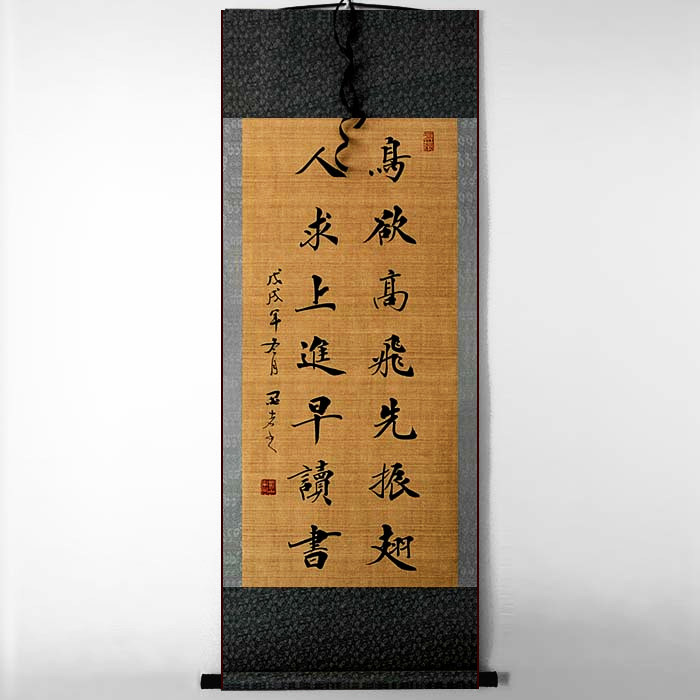 鳥欲高飛先振翅
人求上進早讀書
戊戌年冬月